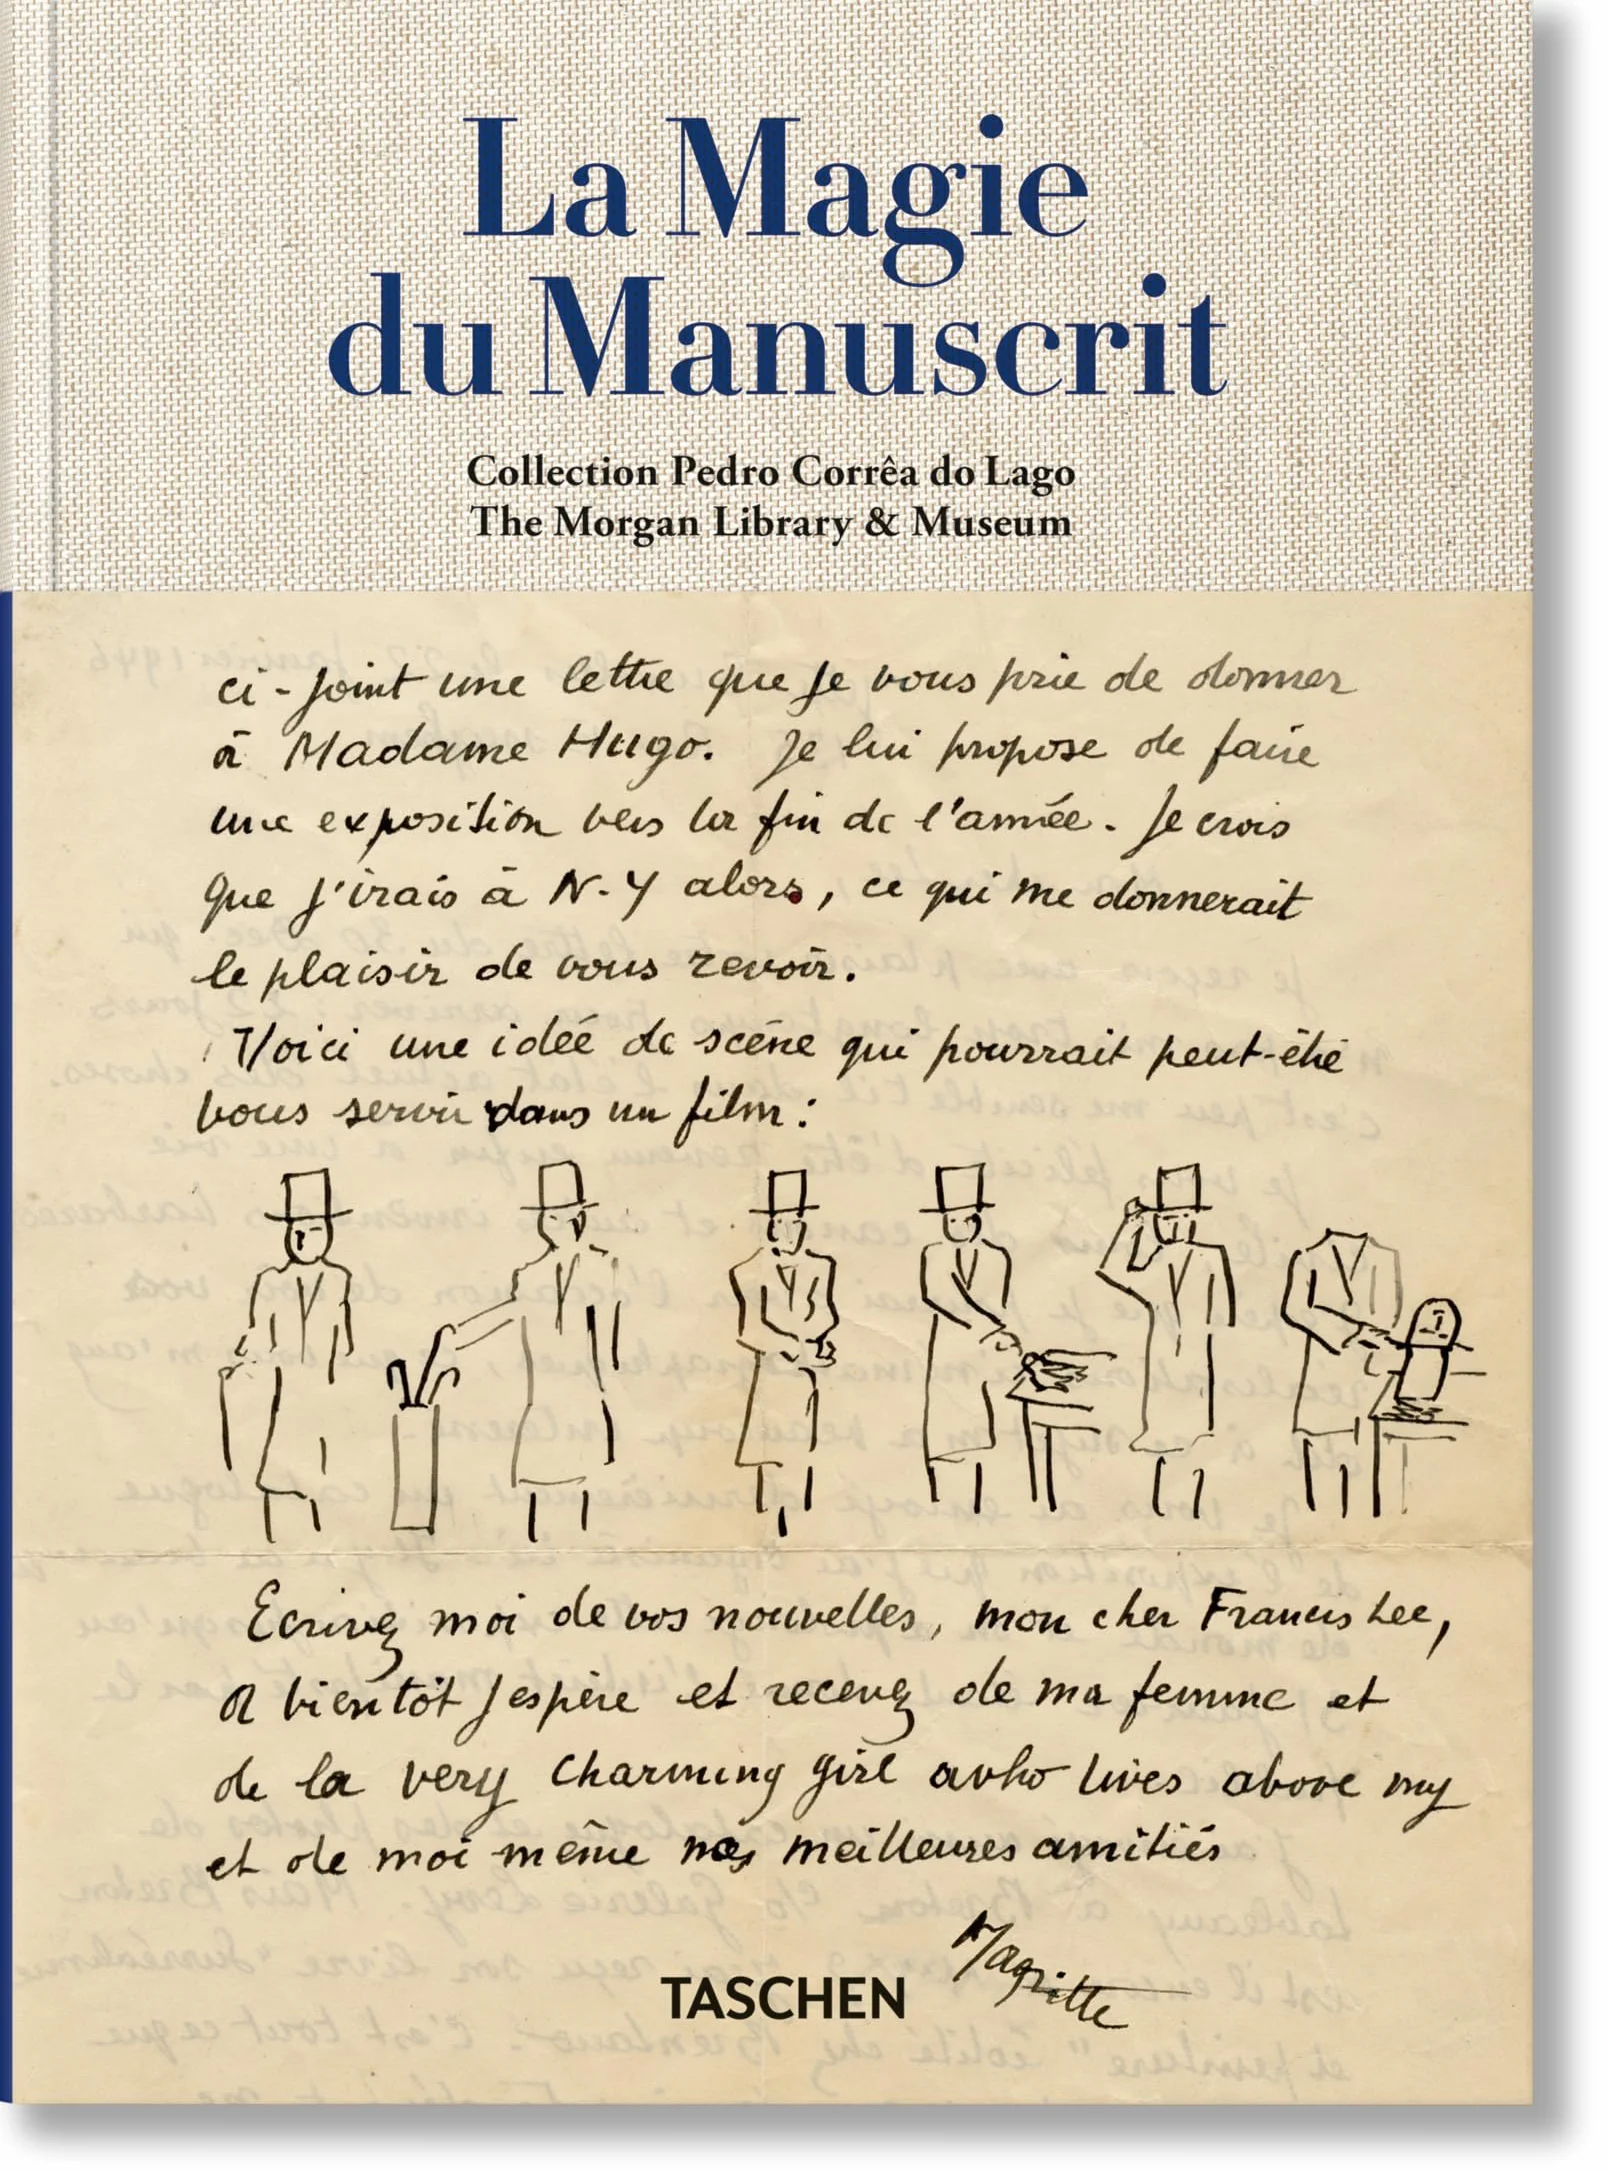 La Magie
du Manuscrit
Collection Pedro Corrêa do Lago
The Morgan Library & Museum
ci-joint une lettre que je vous prie de donner
à Madame Hugo. Je lui propose de faire
une exposition vers la fin de l'année. Je crois
que j'irais à N-Y alors, ce qui me donnerait
le plaisir de vous revoir.
Voici une idée de scène qui pourrait peut-être
vous servir dans un film :
Ecrivez moi de vos nouvelles, mon cher Francis Lee,
A bientôt j'espère et recevez de ma femme et
de la very charming girl who lives above my
et de moi même nos meilleures amitiés
Magritte
TASCHEN